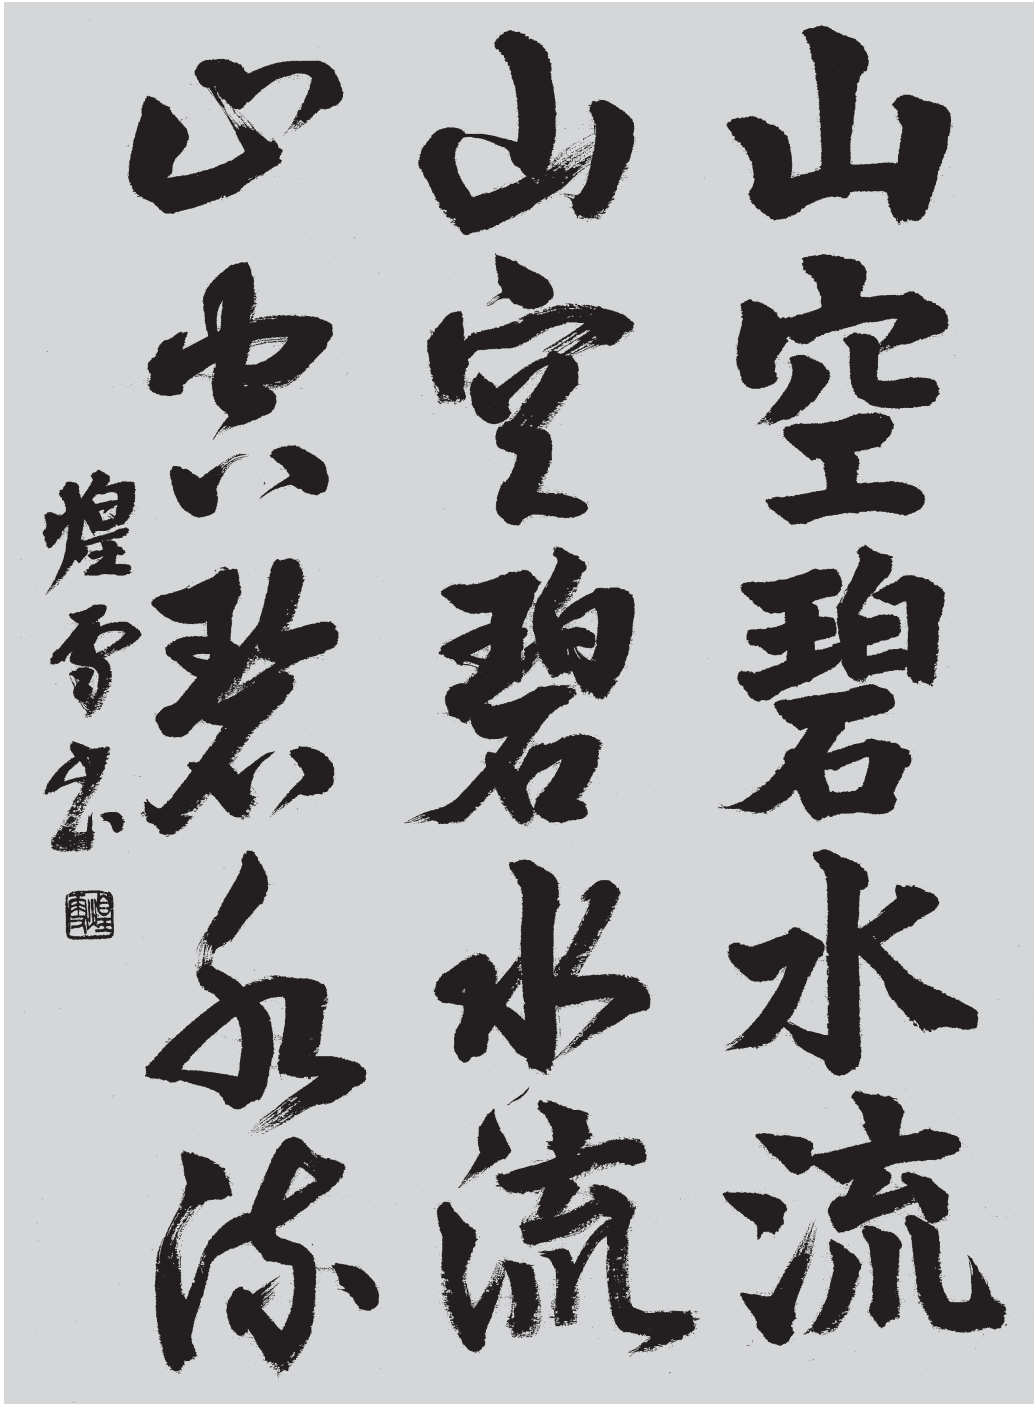 山空碧水流
山空碧水流
山空碧水流
煌雪書
煌雪